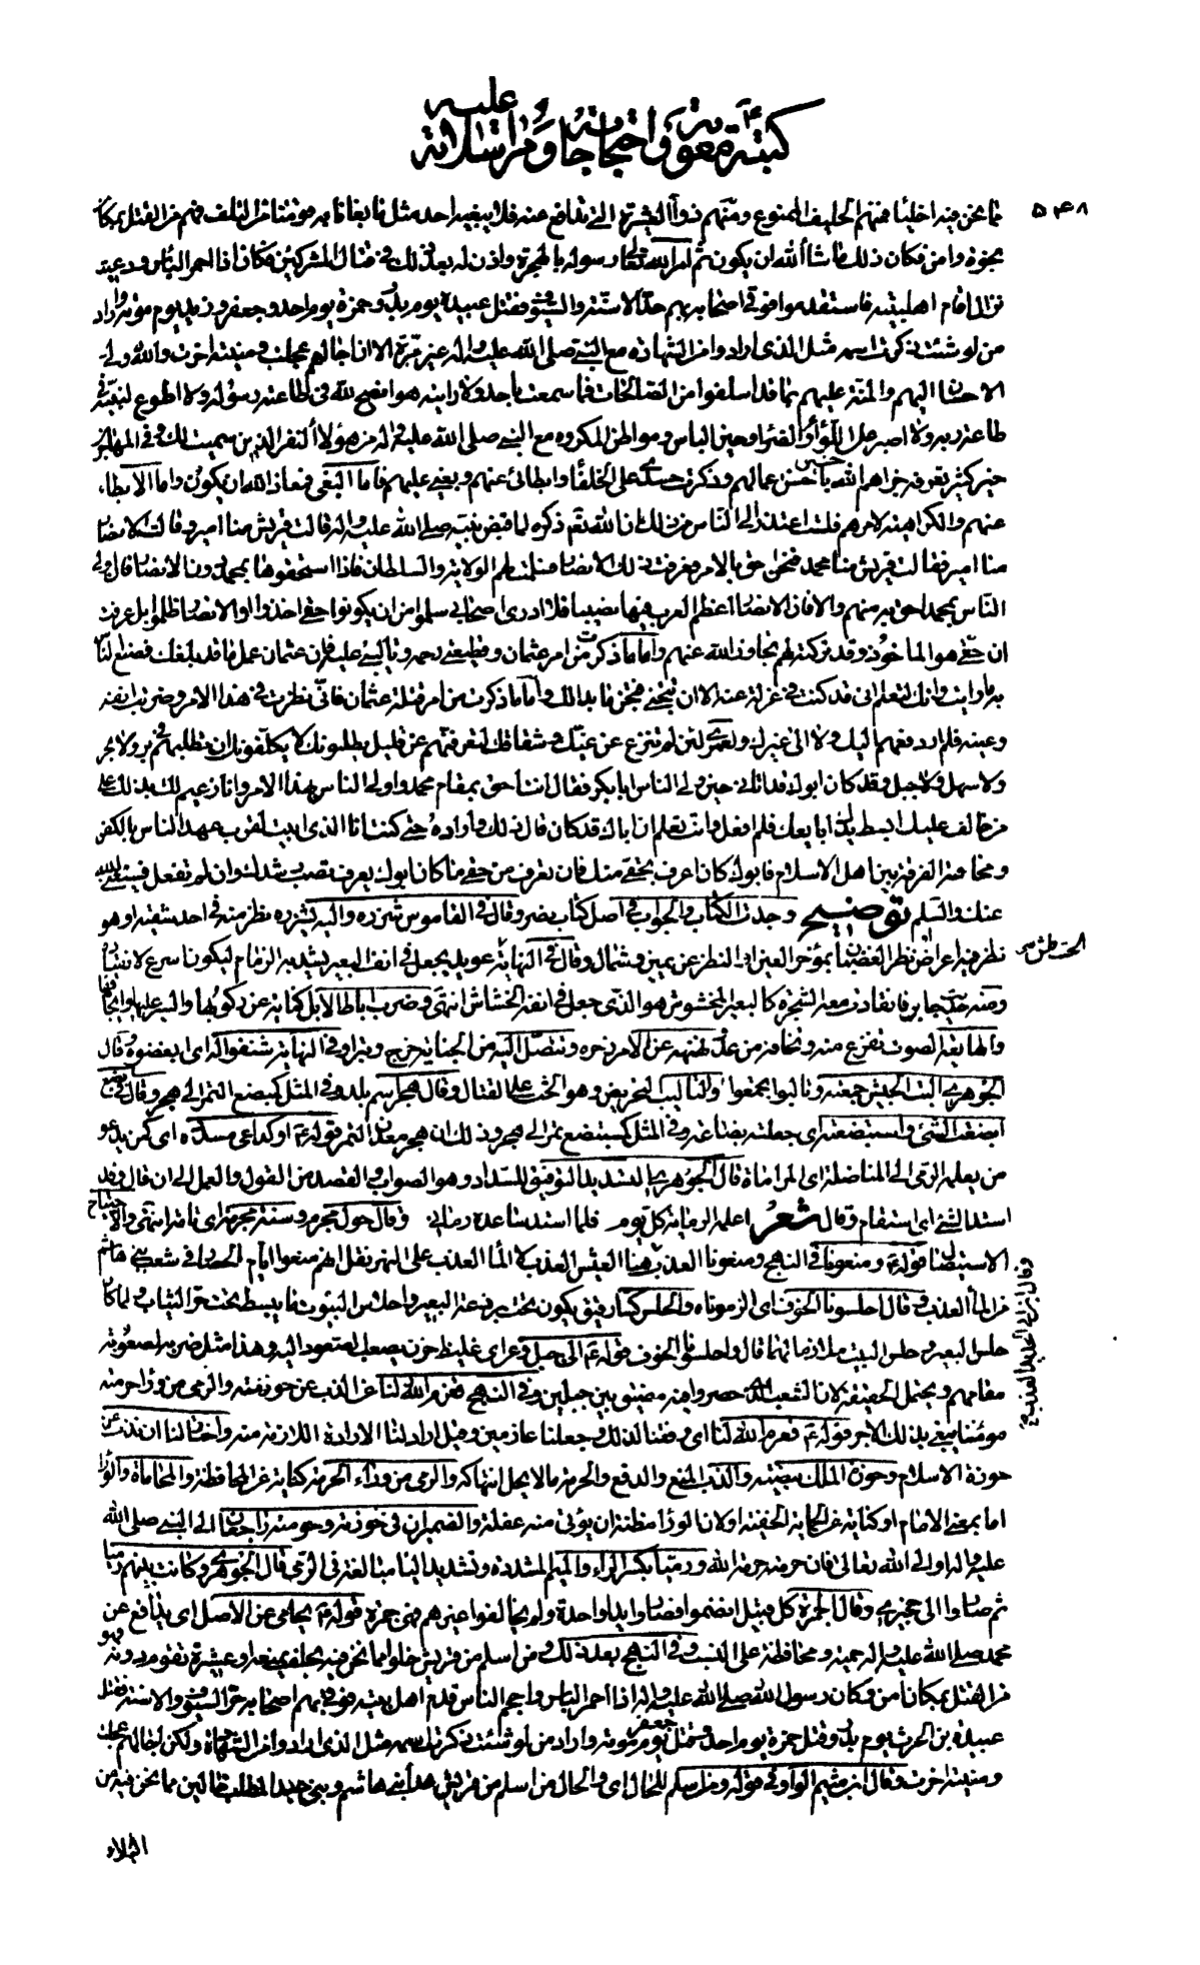 كتبه ع إلى معوية واحتجاجاته عليه ومراسلاته
٥٤٨
مما نحن فيه اخلياء فمنهم الحليف الممنوع ومنهم ذو العشيرة التي تدافع عنه فلا يبغيه احد مثل ما بغانا به قومنا من التلف فهم من القتل بمكان
نجوة وامن فكان ذلك ما شاء الله ان يكون ثم امر الله تعالى رسوله بالهجرة واذن له بعد ذلك في قتال المشركين فكان اذا احمر الباس ودعيت
نزال اقام اهل بيته فاستقدموا فوقى اصحابه بهم حد الاسنة والسيوف فقتل عبيدة يوم بدر وحمزة يوم احد وجعفر وزيد يوم موتة واراد
من لو شئت ذكرت اسمه مثل الذى ارادوا من الشهادة مع النبي صلى الله عليه واله غير مرة الا ان اجالهم عجلت ومنيته اخرت والله ولى
الاحسان اليهم والمنة عليهم بما قد اسلفوا من الصالحات فما سمعت باحد ولا رايته هو انصح لله في طاعة رسوله ولا اطوع لنبيه في
طاعة ربه ولا اصبر على اللأواء والضراء وحين الباس ومواطن المكروه مع النبي صلى الله عليه واله من هؤلاء النفر الذين سميت لك وفي المهاجرين
خير كثير يعرف جزاهم الله خيرا باحسن اعمالهم وذكرت حسدى على الخلفاء وابطائى عنهم وبغيى عليهم فاما البغى فمعاذ الله ان يكون واما الابطاء
عنهم والكراهية لامرهم فلست اعتذر الى الناس من ذلك ان الله تع ذكره لما قبض نبيه صلى الله عليه واله قالت قريش منا امير وقالت الانصار
منا امير فقالت قريش منا محمد فنحن احق بالامر فعرفت ذلك الانصار فسلمت لهم الولاية والسلطان فاذا استحقوها بمحمد دون الانصار فان اولى
الناس بمحمد احق به منهم والا فان الانصار اعظم العرب فيها نصيبا فلا ادرى اصحابى سلموا من ان يكونوا حقى اخذوا او الانصار ظلموا بل عرفت
ان حقى هو الماخوذ وقد تركته لهم تجاوز الله عنهم واما ما ذكرت من امر عثمان وقطيعتى رحمه وتاليبى عليه فان عثمان عمل ما قد بلغك فصنع الناس
به ما رايت وانك لتعلم انى قد كنت في عزلة عنه الا ان تتجنى فتجن ما بدا لك واما ما ذكرت من امر قتلة عثمان فانى نظرت في هذا الامر وضربت انفه
وعينه فلم ار دفعهم اليك ولا الى غيرك ولعمرى لئن لم تنزع عن غيك وشقاقك لتعرفنهم عن قليل يطلبونك لا يكلفونك ان تطلبهم في بر ولا بحر
ولا سهل ولا جبل وقد كان ابوك قد اتانى حين ولى الناس ابا بكر فقال انت احق بمقام محمد واولى الناس بهذا الامر وانا زعيم لك بذلك على
من خالف عليك ابسط يدك ابايعك فلم افعل وانت تعلم ان اباك قد كان قال ذلك واراده حتى كنت انا الذى ابيت لقرب عهد الناس بالكفر
ومخافة الفرقة بين اهل الاسلام فابوك كان اعرف بحقى منك فان تعرف من حقى ما كان ابوك يعرف تصب رشدك وان لم تفعل فسيغنى الله
عنك والسلم توضيح وجدت الكتاب والجواب في اصل كتاب نصر وقال في القاموس شزره واليه يشزره نظر منه في احد شقيه او هو
نظر فيه اعراض نظر الغضبان بمؤخر العين او النظر عن يمين وشمال وقال في النهاية عويد يجعل في انف البعير يشد به الزمام ليكون اسرع لانقياده
ومنه حديث جابر فانقادت معه الشجرة كالبعير المخشوش هو الذى جعل في انفه الخشاش انتهى وضرب اباط الابل كناية عن ركوبها والسير عليها
والهايعة الصوت تفزع منه وتخافه من عدو نهنهه عن الامر زجره وتنصل اليه من الجناية خرج وتبرا وفى النهاية شنفوا له اى ابغضوه قال
الجوهرى البت الجيش جمعته وتالبوا تجمعوا والتاليب التحريض وهو الحث على القتال وقال هجر اسم بلد وفى المثل كمبضع التمر الى هجر وقال في بضع
ابضعت الشئ واستبضعته اى جعلته بضاعة وفى المثل كمستبضع تمر الى هجر وذلك ان هجر معدن التمر قوله ع او كداعى مسدده اى كمن يدعو
من يعلمه الرمى الى المناضلة اى المراماة قال الجوهرى التسديد التوفيق للسداد وهو الصواب والقصد من القول والعمل الى ان قال وقد
استد الشئ اى استقام وقال شعر اعلمه الرماية كل يوم فلما استد ساعده رمانى وقال حول مجرم وسنة مجرمة اى تامة انتهى والاجتياح
الاستيصال قوله ع ومنعونا في النهج ومنعونا العذب
من الماء العذب وقال احلسونا الخوف اى الزموناه والحلس كساء رقيق يكون تحت برذعة البعير واحلاس البيوت ما يبسط تحت حر الثياب
حلس البعير وحلس البيت ملازما لهما قال واحلسونا الخوف قوله ع الى جبل وعر اى غليظ حزن يصعب الصعود اليه وهذا مثل ضربه لصعوبة
مقامهم ويحتمل الحقيقة لان الشعب الذى حصروا فيه مضيق بين جبلين وفى النهج فعزم الله لنا على الذب عن حوزته والرمى من وراء حرمته
مؤمننا يبغى بذلك الاجر قوله ع فعزم الله لنا اى وفقنا لذلك وجعلنا عازمين وقيل اراد لنا الارادة اللازمة منه واختار لنا ان نذب عن
حوزة الاسلام وحوزة الملك بيضته والذب المنع والدفع والحرمة ما لا يحل انتهاكه والرمى من وراء الحرمة كناية عن المحافظة والمحاماة والوراء
اما بمعنى الامام او كناية عن الحماية الخفية او لان الوراء مظنة ان يؤتى منه غفلة والضميران في حوزته وحومته راجعان الى النبي صلى الله
عليه واله او الى الله تعالى فان حرمته حرمة الله ورميا بكسر الراء والميم المشددة وتشديد الياء مبالغة في الرمى قال الجوهرى وكانت بينهم رميا
ثم صاروا الى حجيزى وقال الجمرة كل قبيل انضموا فصاروا يدا واحدة ولم يحالفوا غيرهم فهى جمرة قوله ع يحامى عن الاصل اى يدافع عن
محمد صلى الله عليه واله حمية ومحافظة على النسب وفى النهج بعد ذلك ومن اسلم من قريش خلوا مما نحن فيه بحلف يمنعه او عشيرة تقوم دونه فهو
من القتل بمكان امن وكان رسول الله صلى الله عليه واله اذا احمر الباس واحجم الناس قدم اهل بيته فوقى بهم اصحابه حر السيوف والاسنة فقتل
عبيدة بن الحرث يوم بدر وقتل حمزة يوم احد وقتل جعفر يوم موتة واراد من لو شئت ذكرت اسمه مثل الذى ارادوا من الشهادة ولكن اجالهم عجلت
ومنيته اخرت وقال ابن ميثم الواو في قوله ومن اسلم للحال اى والحال من اسلم من قريش عدا بنى هاشم وبنى عبد المطلب خالين مما نحن فيه من
البلاء